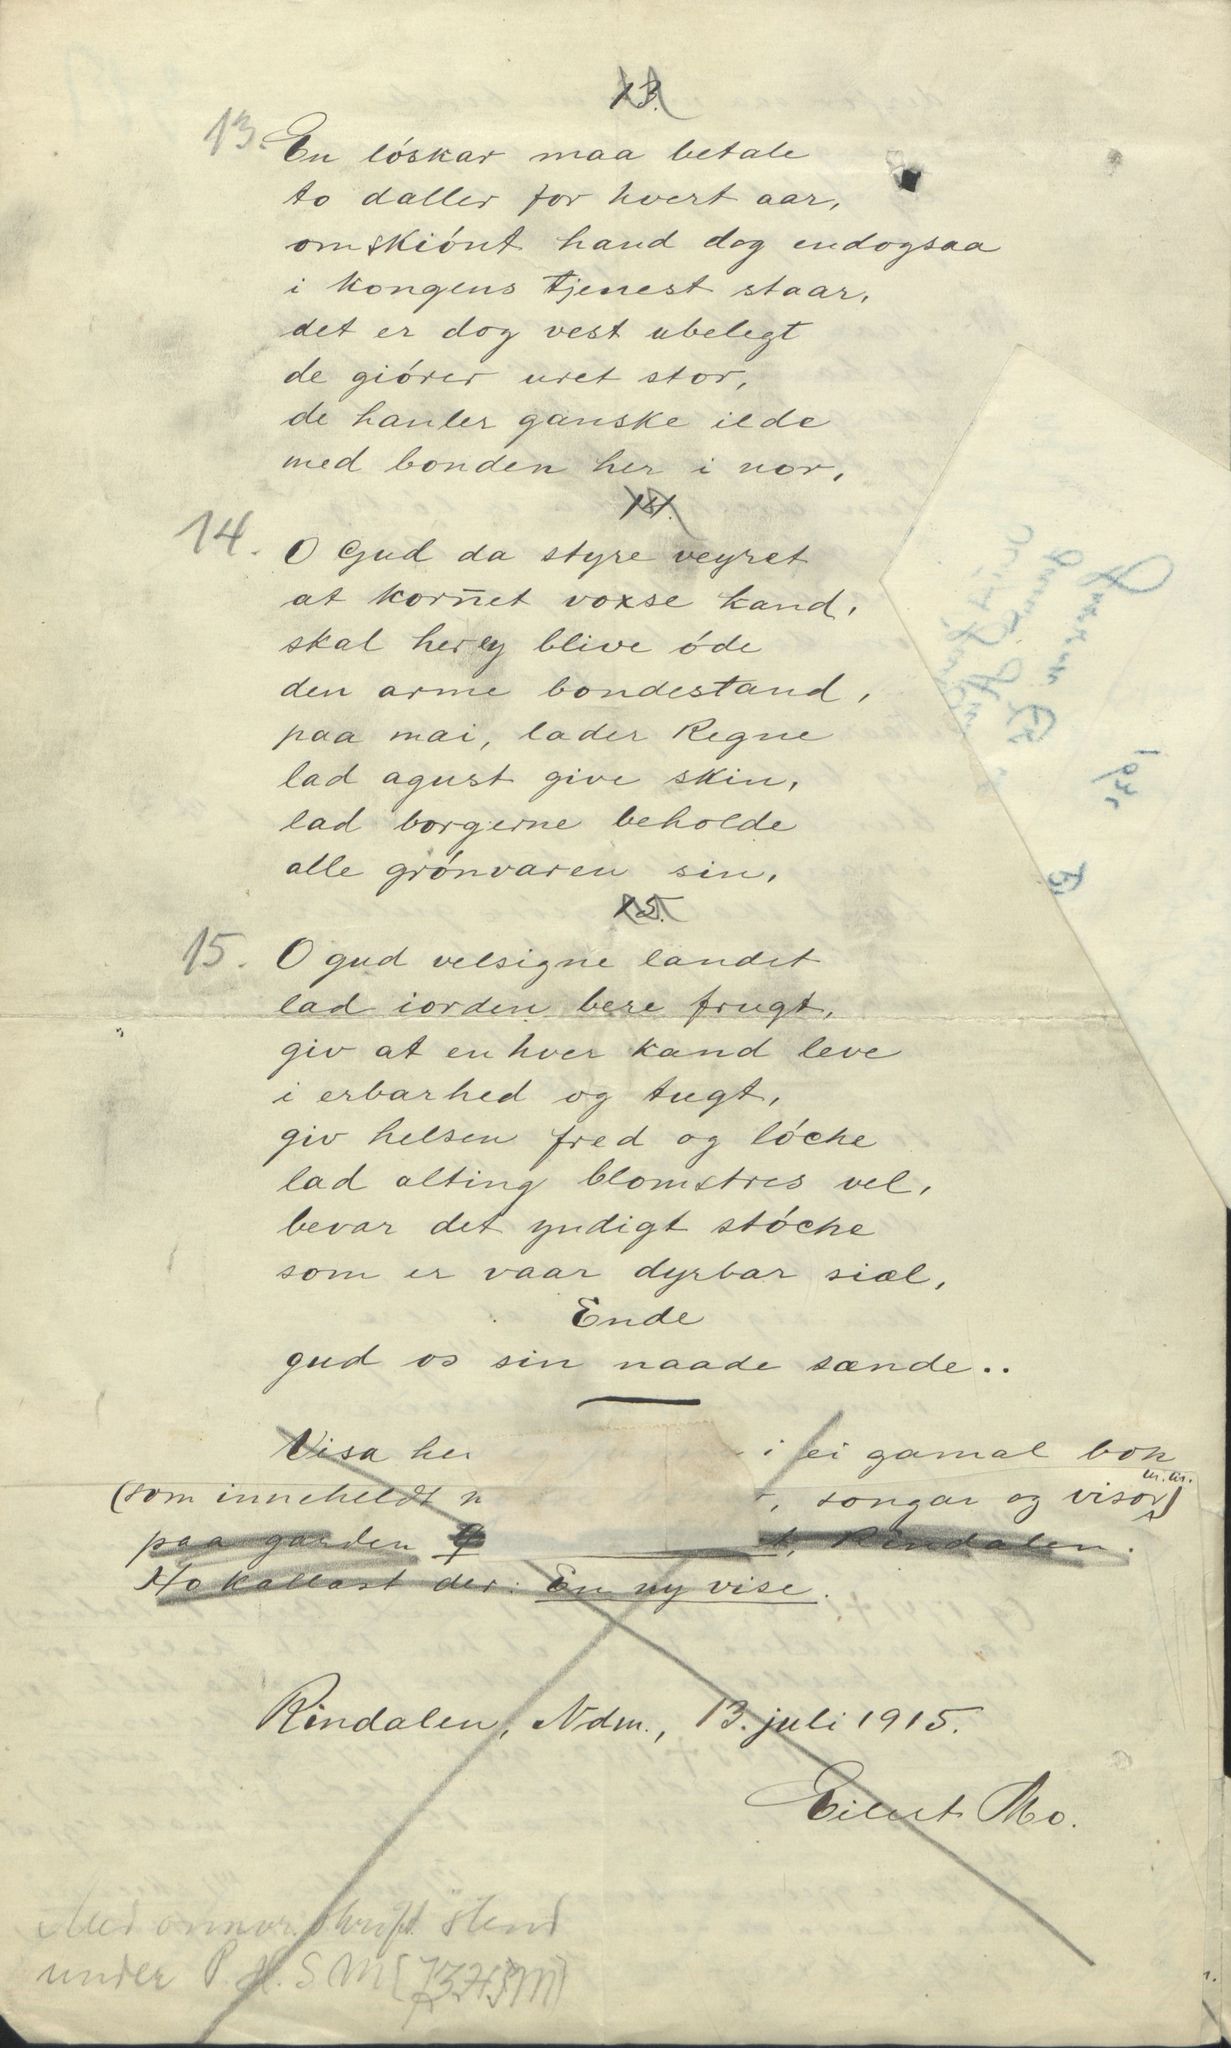 13.
13. En lóskar maa betale
to daller for hvert aar,
omskiónt hand dog endogsaa
i kongens tjenest staar,
det er dog vest ubelegt
de giórer uret stor,
de hanler ganske ilde
med bonden her i nor,
14.
14. O Gud da styre veyret
at korn̄et voxse kand,
skal her ey blive óde
den arme bondestand,
paa mai, lader Regne
lad agust give skin,
lad borgerne beholde
alle grónvaren sin,
15.
15. O gud velsigne landet
lad iorden bere frugt,
giv at en hver kand leve
i erbarhed og tugt,
giv helsen fred og lóche
lad alting blomstres vel,
bevar det yndigt stóche
som er vaar dyrbar siæl,
Ende
gud os sin naade sænde..
Visa her i ei gamal bok
(som inneheldt songar og visor)
paa garden Rindalen.
Ho kallast der: En ny vise.
Rindalen, Ndm., 13. juli 1915.
Eilert Mo.
Med onnor skrift stend
under P. H. S. M